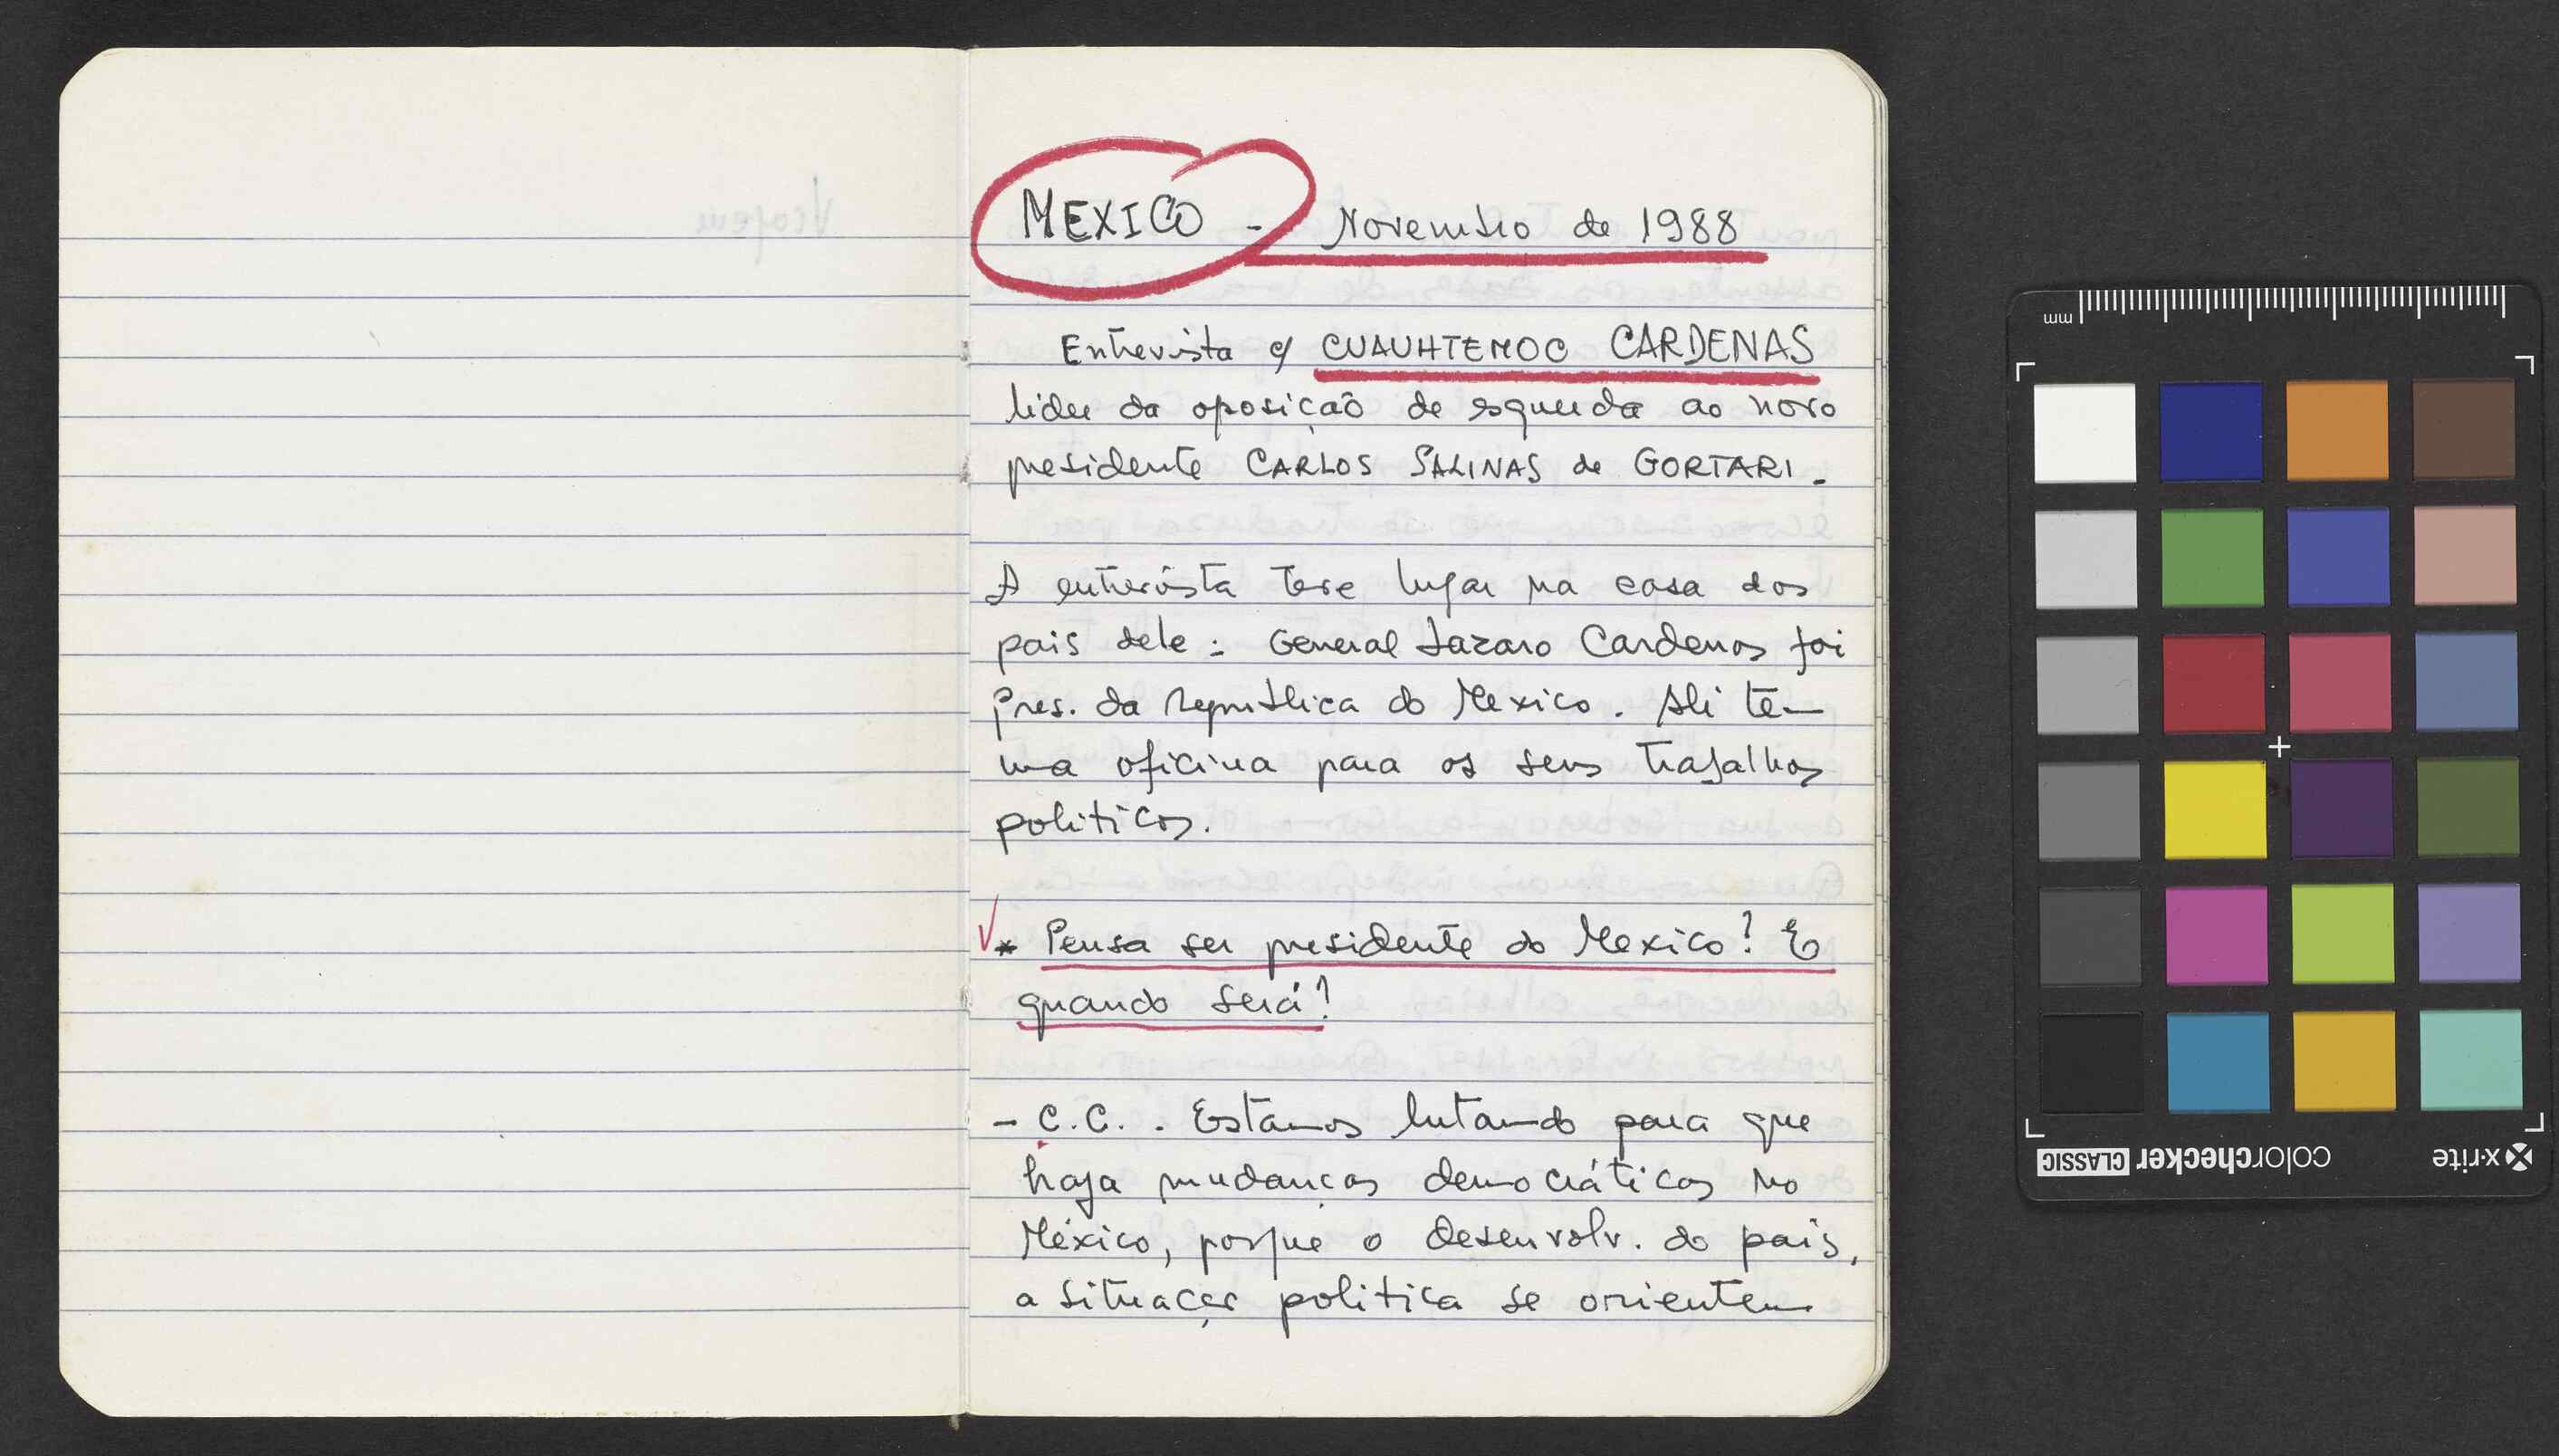 MEXICO - Novembro de 1988
Entrevista c/ CUAUHTEMOC CARDENAS
lider da oposição de esquerda ao novo
presidente CARLOS SALINAS de GORTARI.
A entrevista teve lugar na casa dos
pais dele: General Lazaro Cardenas foi
Pres. da Republica do Mexico. Ali te-
ma oficina para os seus trabalhos
politicos.
* Pensa ser presidente do Mexico? E
quando será?
- C.C. . Estamos lutando para que
haja mudanças democráticas no
México, porque o desenvolv. do pais,
a situação politica se orientem
mm
x-rite
colorchecker CLASSIC